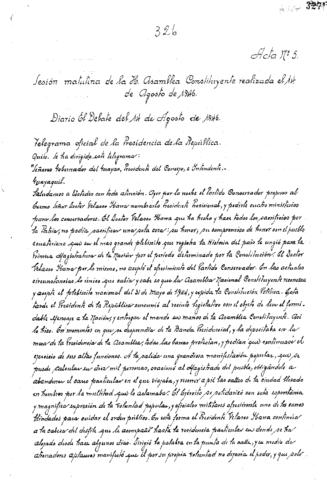 327
326
Acta Nº 5.
Sesión matutina de la H. Asamblea Constituyente realizada el 14
de Agosto de 1946.
Diario El Debate del 14 de Agosto de 1946.
Telegrama oficial de la Presidencia de la República.
Quito. Se ha dirigido este telegrama:
Señores Gobernador del Guayas, Presidente del Concejo, e Intendente.-
Guayaquil.
Saludamos a Ustedes con toda atención. Ayer por la noche el Partido Conservador propuso al
Señor Doctor Velasco Ibarra nombrarlo Presidente Provisional, y pedirle cuatro ministerios
para los conservadores. El Doctor Velasco Ibarra que ha hecho y hace todos los sacrificios por
la Patria, no podía sacrificar una sola cosa: su honor, su compromiso de honor con el pueblo
ecuatoriano que en el más grande plebiscito que registra la Historia del país le ungió para la
Primera Magistratura de la Nación por el período determinado por la Constitución. El Doctor
Velasco Ibarra por lo mismo, no aceptó el ofrecimiento del Partido Conservador. En las actuales
circunstancias, lo único que cabía y cabe es que la Asamblea Nacional Constituyente reconozca
y acepte el plebiscito nacional del 31 de Mayo de 1944, y expida la Constitución Política. Esta
tarde el Presidente de la República concurrió al recinto legislativo con el objeto de leer el formi-
dable Mensaje a la Nación y entregar el mando en manos de la Asamblea Constituyente. Así
lo hizo. En momentos en que se desprendía de la Banda Presidencial, y la depositaba en la
mesa de la Presidencia de la Asamblea, todas las barras protestaron, y pedían que continuase el
ejercicio de sus altas funciones. A la salida una grandiosa manifestación popular, que se
puede calcular en diez mil personas, ovacionó al Magistrado del pueblo, obligándole a
abandonar el carro particular en el que viajaba, y recorrió a pie las calles de la ciudad llevado
en hombros por la multitud que lo aclamaba. El Ejército, se solidarizó con esta espontánea
y magnífica expresión de la voluntad popular, y oficiales militares ofreciendo uno de los carros
blindados para cuidar el orden público. En esta forma el Presidente Velasco Ibarra continúa
a la cabeza del desfile que le acompañó hasta la residencia particular en donde, se ha
alojado desde hace algunos días. Dirigió la palabra en la puerta de la calle, y en medio de
atronadores aplausos manifestó que él por su propia voluntad no dejaría el poder, y que, solo